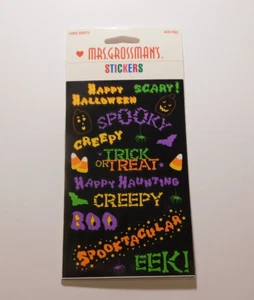 MRS. GROSSMAN'S
STICKERS
HAPPY
HALLOWEEN
SCARY!
SPOOKY
CREEPY
TRICK
OR TREAT
HAPPY HAUNTING
CREEPY
BOO
SPOOKTACULAR
EEK!